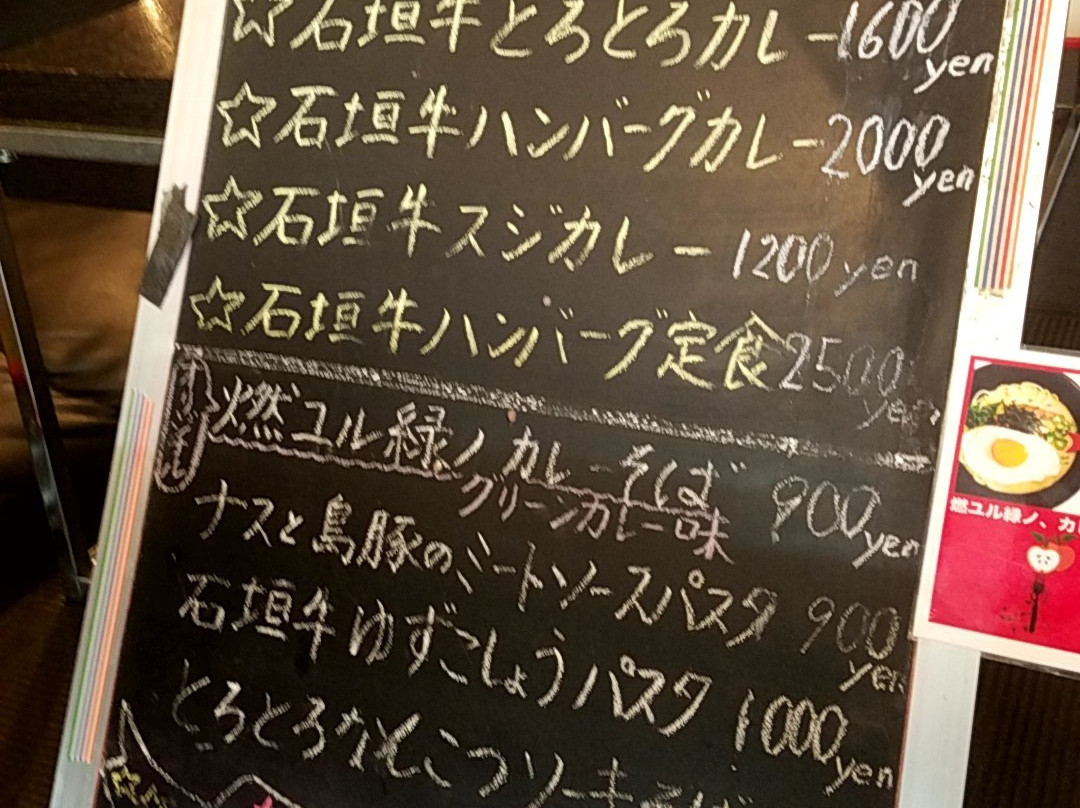 ☆石垣牛とろとろカレー1600yen
☆石垣牛ハンバーグカレー2000yen
☆石垣牛スジカレー1200yen
☆石垣牛ハンバーグ定食2500yen
燃ユル緑ノカレーそば 900yen
グリーンカレー味
ナスと島豚のミートソースパスタ 900yen
石垣牛ゆずこしょうパスタ 1000yen
とろとろなんこつソーキそば
燃ユル緑ノ、カ